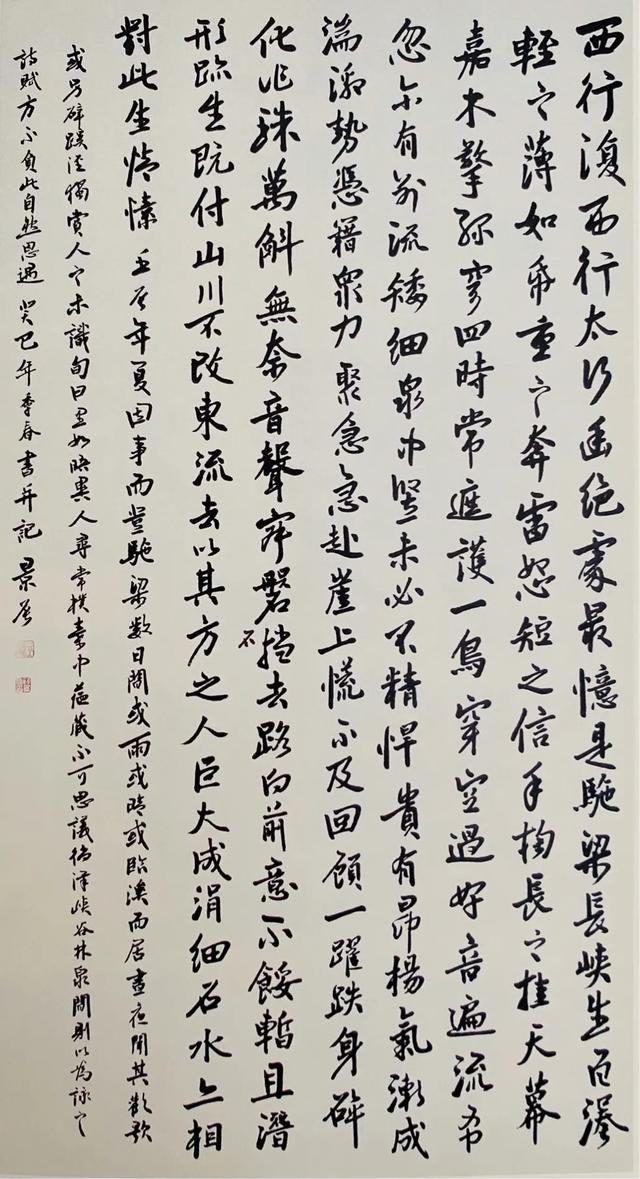 西行復西行太行幽絕處最憶是駞梁長峽生百瀑
輕之薄如帛重之奔雷怒短之信手掬長之挂天幕
嘉木擎穹四時常遮護一鳥穿空過好音遍流布
忽尒有別流矮細泉巾豎未必不精悍貴有昂楊氣漸成
湍溜勢憑藉眾力聚急急赴崖上慌不及回顧一躍跌身碎
化作珠萬斛無奈音聲磐石擋去路向前意不餒暫且潛
形跡生既付山川不改東流去以其方之人巨大成涓細石水亦相
對此生情愫 壬辰年夏因事而登駞梁數日間或雨或晴或臨溪而居晝夜聞其歡歌
或另辟蹊徑獨賞人之未識旬日里如晤異人尋常樸素中蘊藏不可思議徜徉峽谷林泉間則以為詠之
詩賦方不負此自然恩遇 癸巳年季春書并記 景